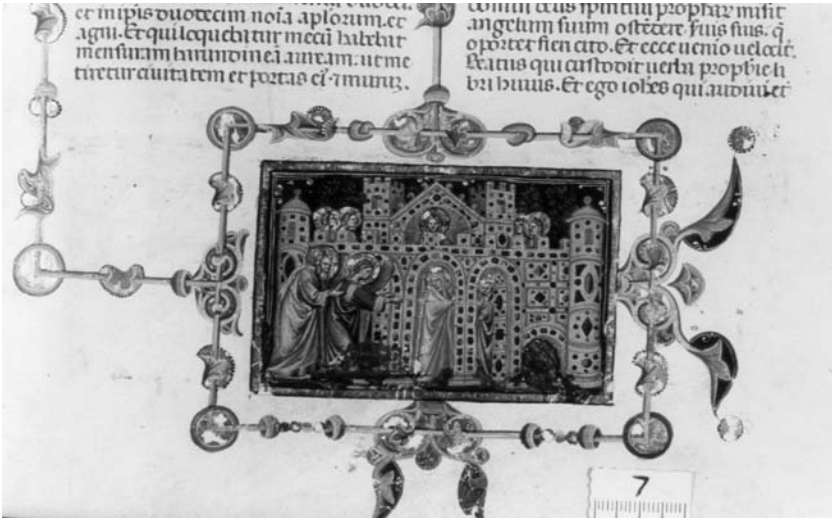 et in ipis duodecim noīa aplorum et
agni. Et qui loquebitur mecū habebat
mensuram harundineā auream. ut me
tiretur ciuitatem et portas ei⁹ ⁊ murū.
spirituū prophar misit
angelum suum ostēdere suis suis. q̄
oportet fieri cito. Et ecce uenio uelocit̄.
Beatus qui custodit uerba prophie li
bri huius. Et ego iohēs qui audiui et
7